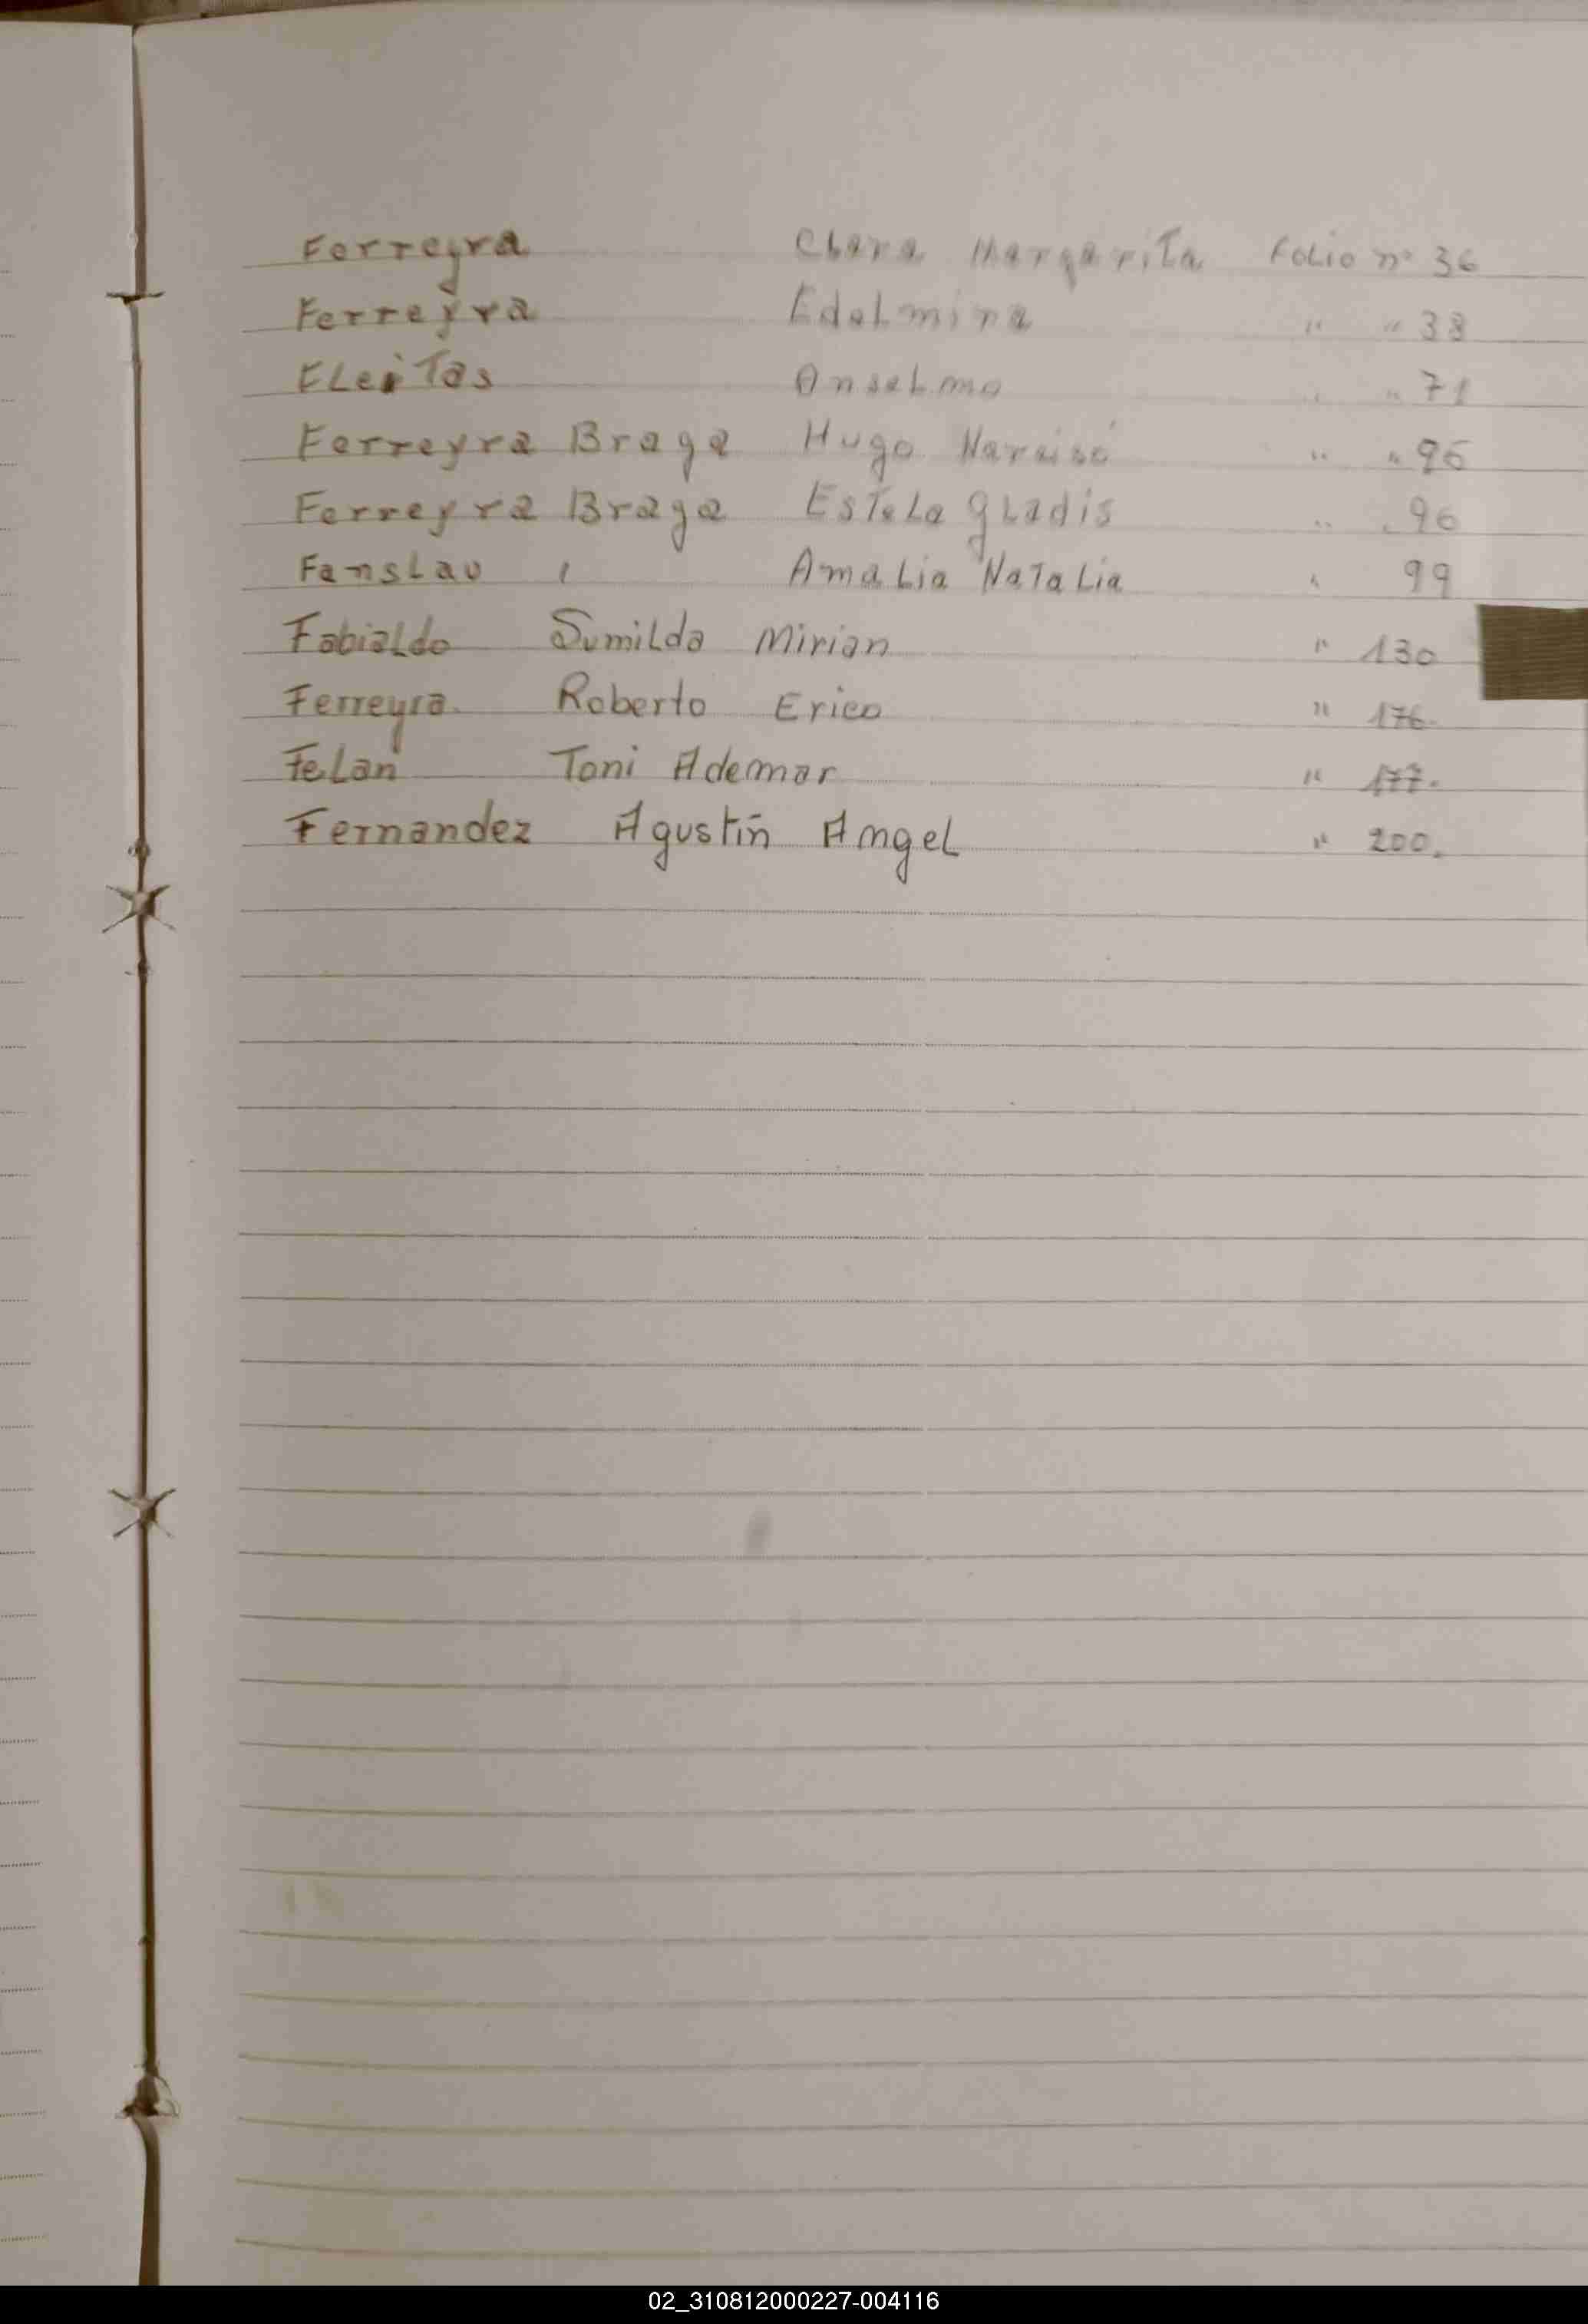 Ferreyra Clara Margarita Folio nº 36
Ferreyra Edelmira " " 38
FLeiTas Anselmo " " 71
Ferreyra Braga Hugo Narciso " " 96
Ferreyra Braga EsTeLa gLadis " " 96
FansLau AmaLia NaTaLia " 99
Fabialdo SumiLda Mirian " 130
Ferreyra. Roberto Erico " 176.
FeLan Toni Ademar " 177.
Fernandez Agustín AngeL " 200.
02_310812000227-004116